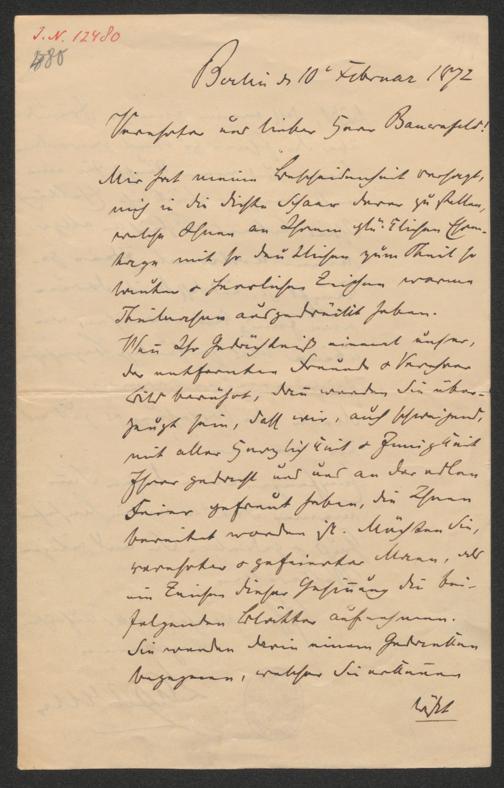 J. N. 12480
480
Berlin d. 10t Februar 1872
Verehrter und lieber Herr Bauernfeld!
Mir hat meine Bescheidenheit versagt,
mich in die dichte Schaar derer zu stellen,
welche Ihnen an Ihrem glücklichen Ehren-
tage mit so deutlichen zum Theil so
 & herrlichen Zeichen warme
Theilnahme ausgedrückt haben.
Wenn Ihr Gedächtniß einmal unser,
der entfernten Freunde & Verehrer
Bild berührt, dann werden Sie über-
zeugt sein, daß wir, auch schweigend,
mit aller Herzlichkeit & Innigkeit
Ihrer gedacht und uns an der edlen
Feier gefreut haben, die Ihnen
bereitet worden ist. Möchten Sie,
verehrter & gefeierter Mann, als
ein Zeichen dieser Gesinnung die bei-
folgenden Blätter aufnehmen.
Sie werden darin einem Gedanken
begegnen, welcher Sie erkennen
läßt